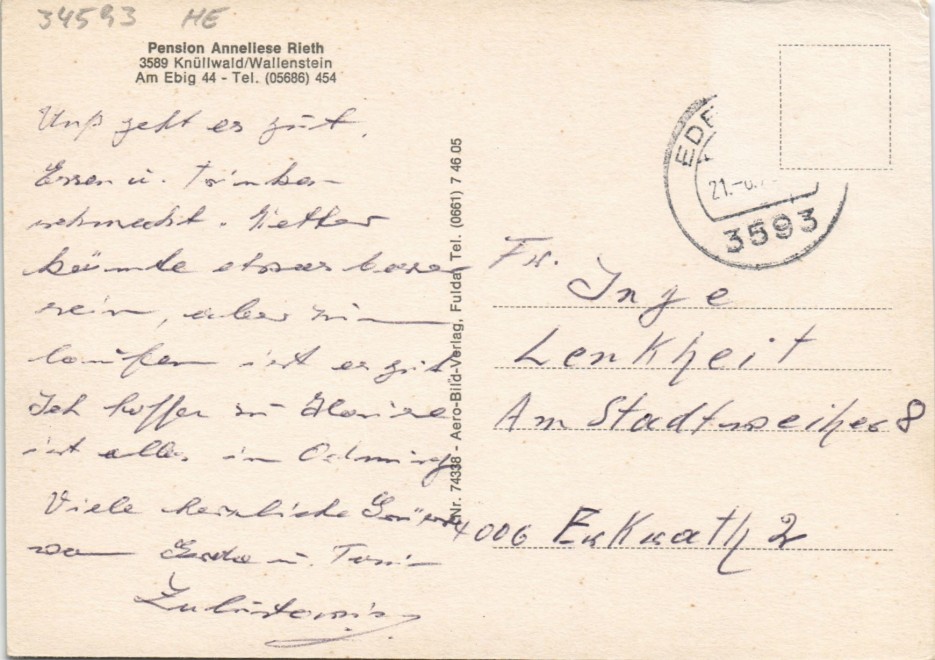 34593 HE
Pension Anneliese Rieth
3589 Knüllwald/Wallenstein
Am Ebig 44 - Tel. (05686) 454
Unß geht es gut.
Essen u. Trinken
schmeckt. Wetter
könnte etwas besser
sein, aber zum
laufen ist es gut
Ich hoffe zu Hause
ist alles in Ordnung
Viele herzliche Grüße
von Gerda u. Toni
Nr. 74338 - Aero-Bild-Verlag, Fulda, Tel. (0661) 7 46 05
EDE
21.-
3593
Fr. Inge
Lenkheit
Am Stadtweiher 8
4006 Erkrath 2